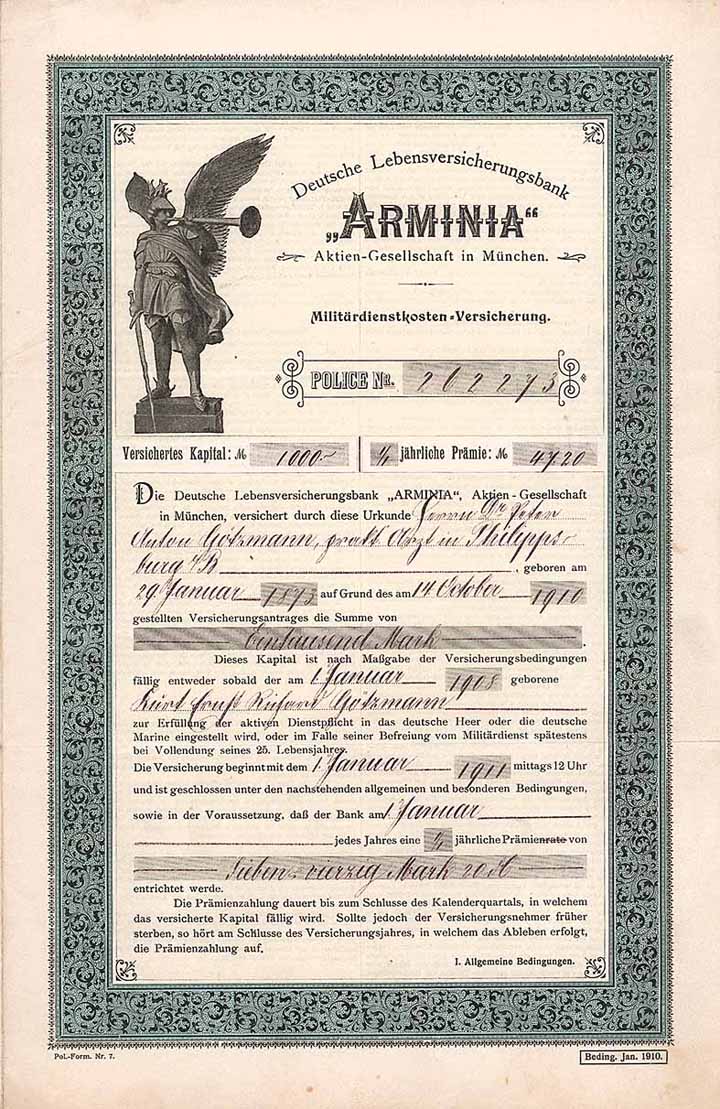 Deutsche Lebensversicherungsbank
„ARMINIA“
Aktien-Gesellschaft in München.
Militärdienstkosten-Versicherung.
POLICE NR. 202273
Versichertes Kapital: ℳ 1000.- 1/1 jährliche Prämie: ℳ 47.20
Die Deutsche Lebensversicherungsbank „ARMINIA“, Aktien-Gesellschaft
in München, versichert durch diese Urkunde Herrn Dr Peter
Anton Götzmann, prakt. Arzt in Philipps-
burg a/B, geboren am
29. Januar 1873 auf Grund des am 14. October 1910
gestellten Versicherungsantrages die Summe von
Eintausend Mark.
Dieses Kapital ist nach Maßgabe der Versicherungsbedingungen
fällig entweder sobald der am 1. Januar 1908 geborene
Kurt Ernst Richard Götzmann
zur Erfüllung der aktiven Dienstpflicht in das deutsche Heer oder die deutsche
Marine eingestellt wird, oder im Falle seiner Befreiung vom Militärdienst spätestens
bei Vollendung seines 25. Lebensjahres.
Die Versicherung beginnt mit dem 1. Januar 1911 mittags 12 Uhr
und ist geschlossen unter den nachstehenden allgemeinen und besonderen Bedingungen,
sowie in der Voraussetzung, daß der Bank am 1. Januar
jedes Jahres eine 1/1 jährliche Prämienrate von
Sieben-vierzig Mark 20 ₰
entrichtet werde.
Die Prämienzahlung dauert bis zum Schlusse des Kalenderquartals, in welchem
das versicherte Kapital fällig wird. Sollte jedoch der Versicherungsnehmer früher
sterben, so hört am Schlusse des Versicherungsjahres, in welchem das Ableben erfolgt,
die Prämienzahlung auf.
I. Allgemeine Bedingungen.
Pol.-Form. Nr. 7.
Beding. Jan. 1910.